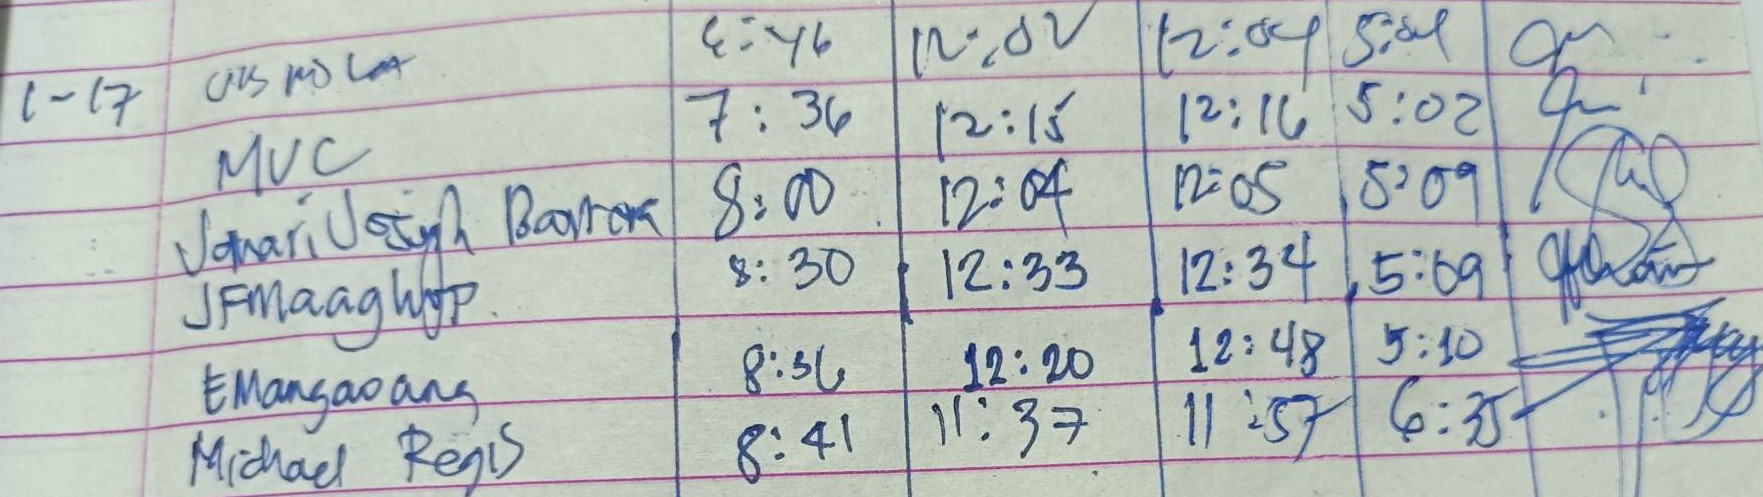 6:46 12:02 12:04 5:04
1-17
7:36 12:15 12:16 5:02
MVC 8:00 12:04 12:05 5:09
Jomari Joseph
JFMaaghop 8:30 12:33 12:34 5:09
EMangaoang 8:36 12:20 12:48 5:10
Michael Regis 8:41 11:37 11:57 6:35